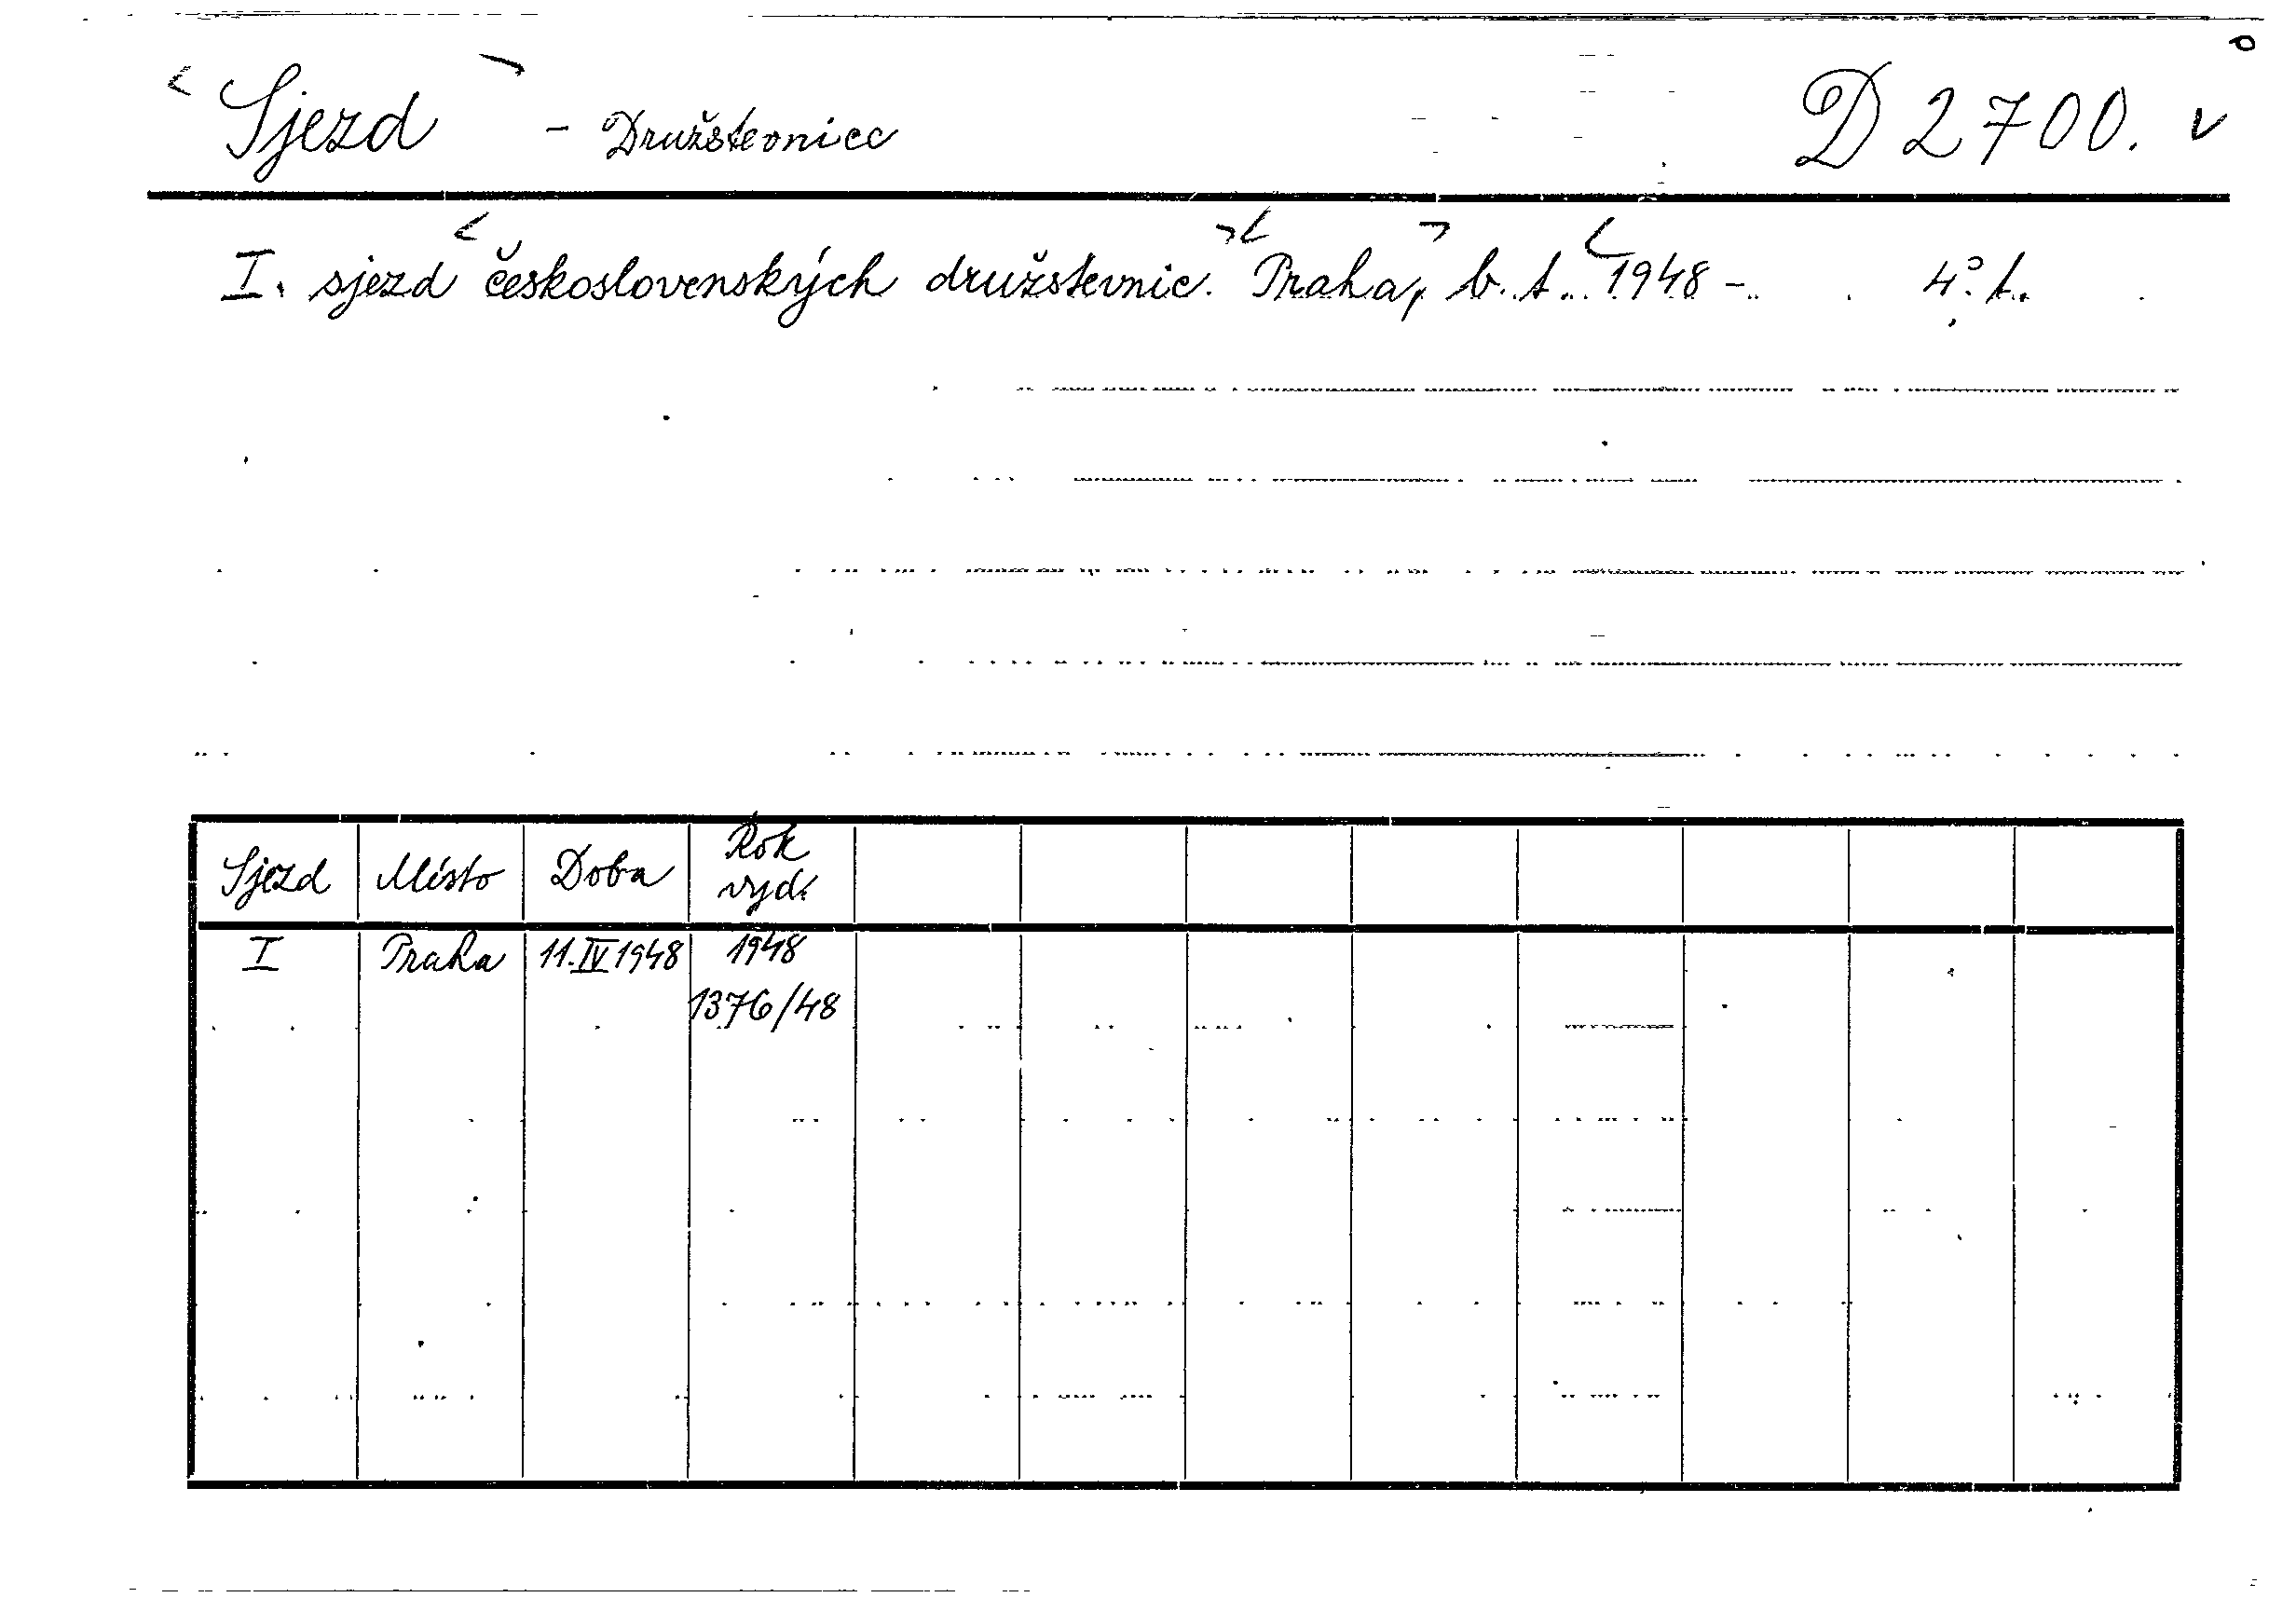 Sjezd - Družstevnice D 2700. v
I. sjezd československých družstevnic. Praha, b. t. 1948 - 4°. t.
Sjezd Místo Doba Rok vyd.
I Praha 11.IV 1948 1948
1376/48